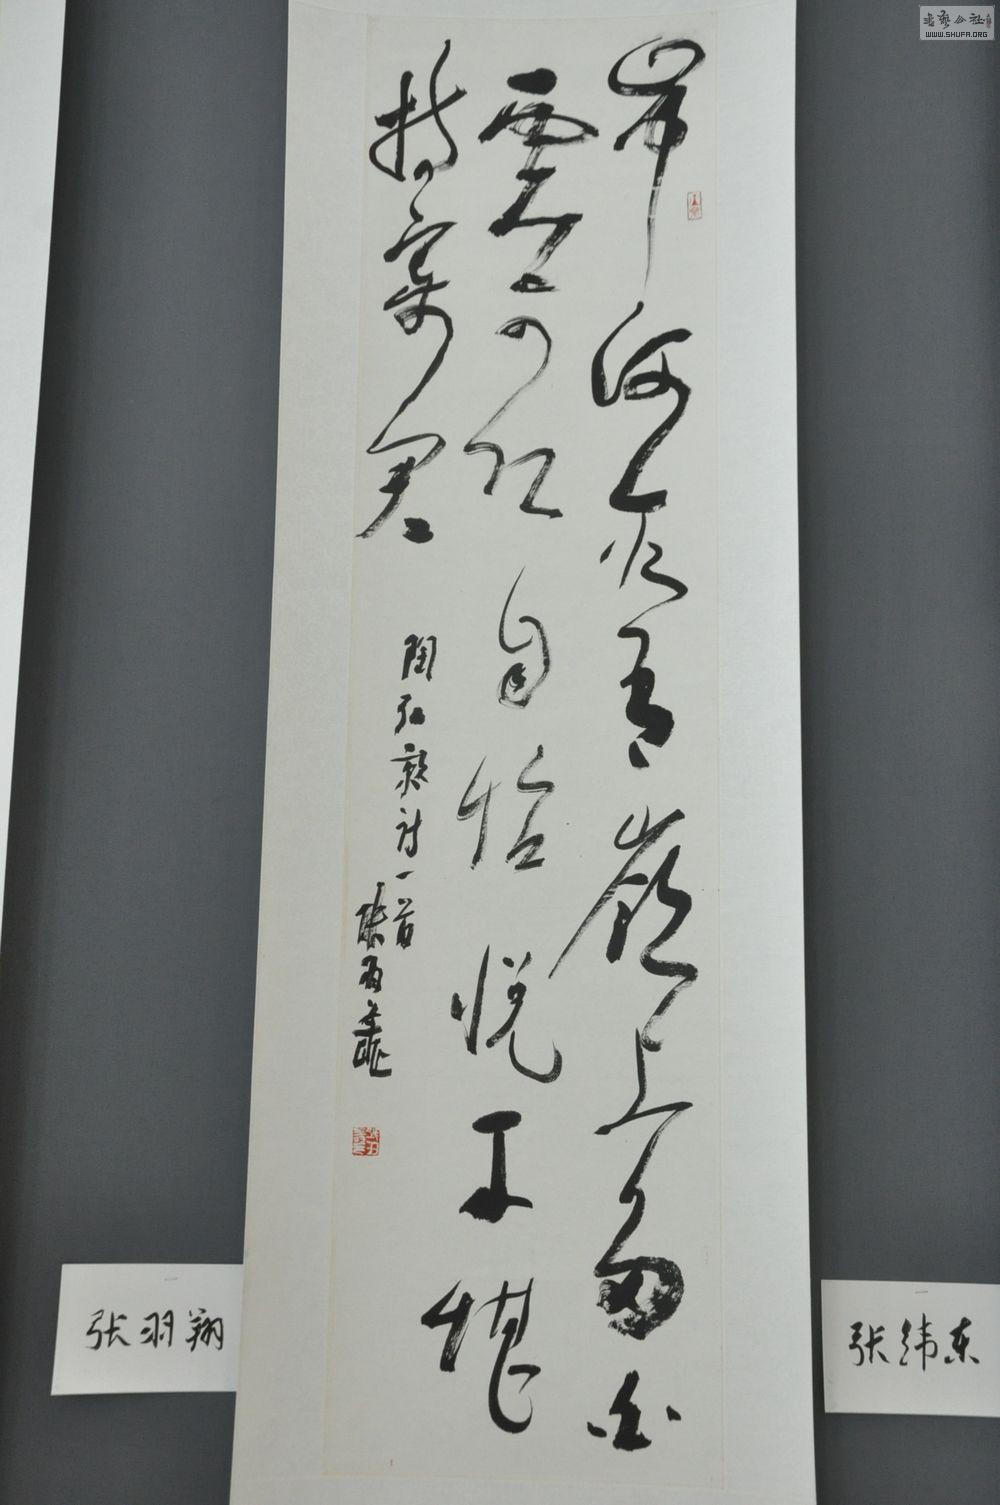 山中何所有嶺上多白
雲可以自怡悦不堪
持寄君
陶弘景詩一首
张羽翔
张纬东
书艺公社
WWW.SHUFA.ORG